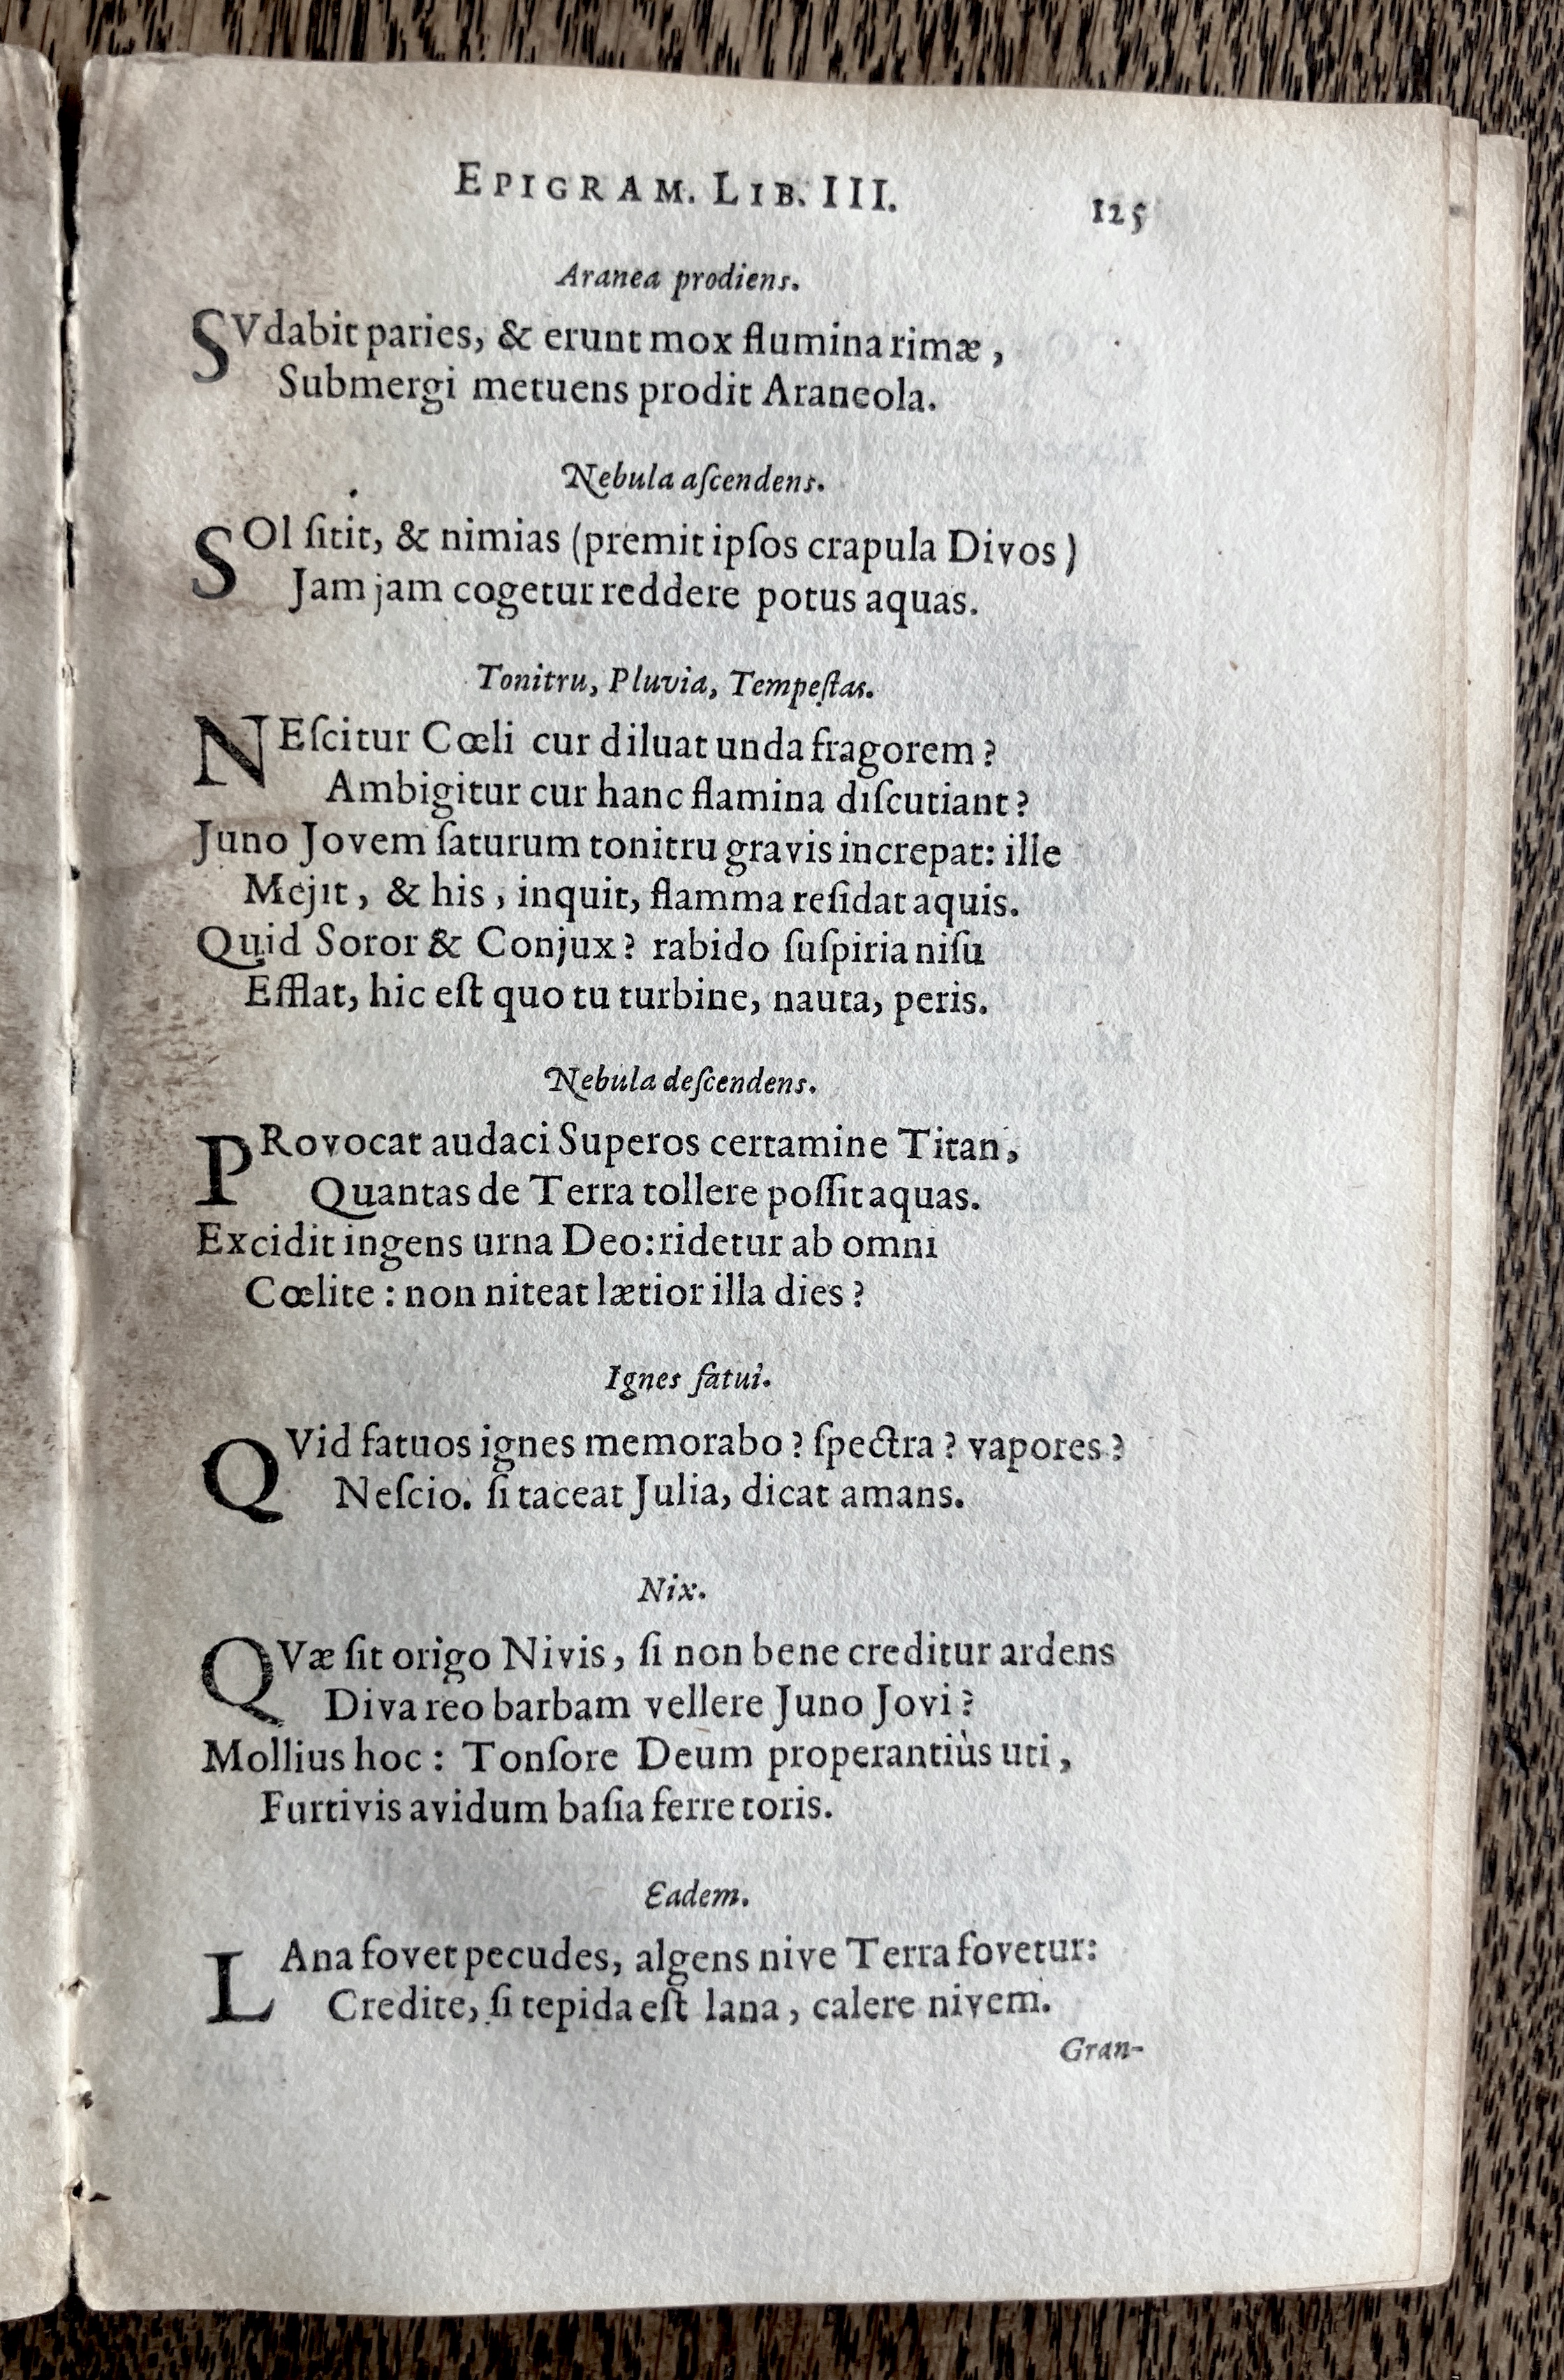 EPIGRAM. LIB. III. 125
Aranea prodiens.
SVdabit paries, & erunt mox flumina rimæ,
Submergi metuens prodit Araneola.
Nebula aſcendens.
SOl ſitit, & nimias (premit ipſos crapula Divos)
Jam jam cogetur reddere potus aquas.
Tonitru, Pluvia, Tempeſtas.
NEſcitur Cœli cur diluat unda fragorem?
Ambigitur cur hanc flamina diſcutiant?
Juno Jovem ſaturum tonitru gravis increpat: ille
Mejit, & his, inquit, flamma reſidat aquis.
Quid Soror & Conjux? rabido ſuſpiria niſu
Efflat, hic eſt quo tu turbine, nauta, peris.
Nebula deſcendens.
PRovocat audaci Superos certamine Titan,
Quantas de Terra tollere poſſit aquas.
Excidit ingens urna Deo: ridetur ab omni
Cœlite: non niteat lætior illa dies?
Ignes fatui.
QVid fatuos ignes memorabo? ſpectra? vapores?
Neſcio. ſi taceat Julia, dicat amans.
Nix.
QVæ ſit origo Nivis, ſi non bene creditur ardens
Diva reo barbam vellere Juno Jovi?
Mollius hoc: Tonſore Deum properantiùs uti,
Furtivis avidum baſia ferre toris.
Eadem.
LAna fovet pecudes, algens nive Terra fovetur:
Credite, ſi tepida eſt lana, calere nivem.
Gran-